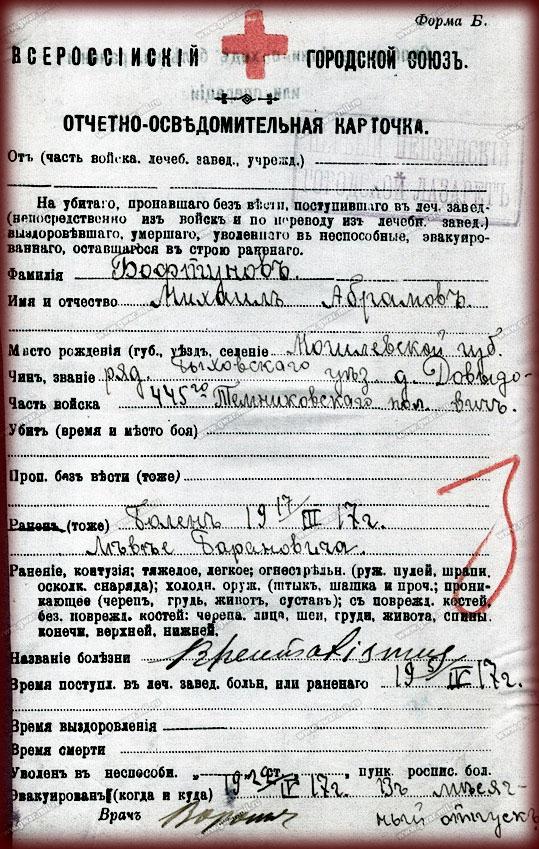 Форма Б.
ВСЕРОССІЙСКІЙ ГОРОДСКОЙ СОЮЗЪ.
ОТЧЕТНО-ОСВѢДОМИТЕЛЬНАЯ КАРТОЧКА.
Отъ (часть войска. лечеб. завед., учрежд.)
На убитаго, пропавшаго безъ вѣсти, поступившаго въ леч. завед-
(непосредственно изъ войскъ и по переводу изъ лечебн. завед.)
выздоровѣвшаго, умершаго, уволеннаго въ неспособные, эвакуиро-
ваннаго, оставшагося въ строю раненаго.
Фамилія Бофтуновъ.
Имя и отчество Михаилъ Абрамовъ.
Мѣсто рожденія (губ., уѣздъ, селеніе Могилевской губ.
Чинъ, званіе ряд. Быховскаго уѣз д. Довыдо-
Часть войска 445го Темниковскаго пол. вичъ.
Убитъ (время и мѣсто боя)
Проп. безъ вѣсти (тоже)
Раненъ (тоже) Боленъ 19 17/III 17 г.
Барановича.
Раненіе, контузія; тяжелое, легкое; огнестрѣльн. (руж. пулей, шрапн.
осколк. снаряда); холодн. оруж. (штыкъ, шашка и проч.; прони-
кающее (черепъ, грудь, животъ, суставъ); съ поврежд. костей,
безъ поврежд. костей: черепа, лица, шеи, груди, живота, спины,
конечн. верхней, нижней.
Названіе болѣзни
Время поступл. въ леч. завед. больн. или раненаго 19 5/IV 17 г.
Время выздоровленія
Время смерти
Уволен въ неспособн. „ “ , пунк. роспис. бол.
Эвакуированъ (когда и куда) 19 IV 17 г. Въ мѣсяч-
Врачъ ный отпускъ